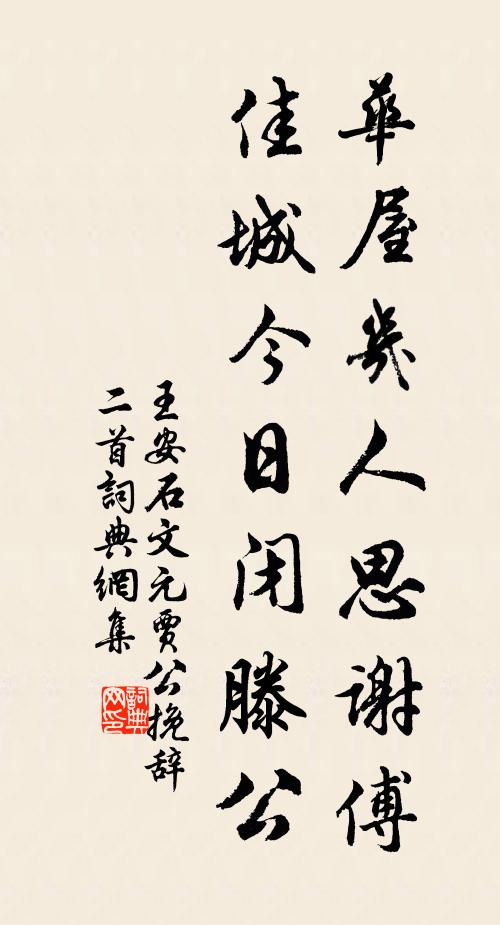 華屋幾人思謝傅
佳城今日閉滕公
王安石文元賈公挽辞
二首詞典網集
詞典
网印